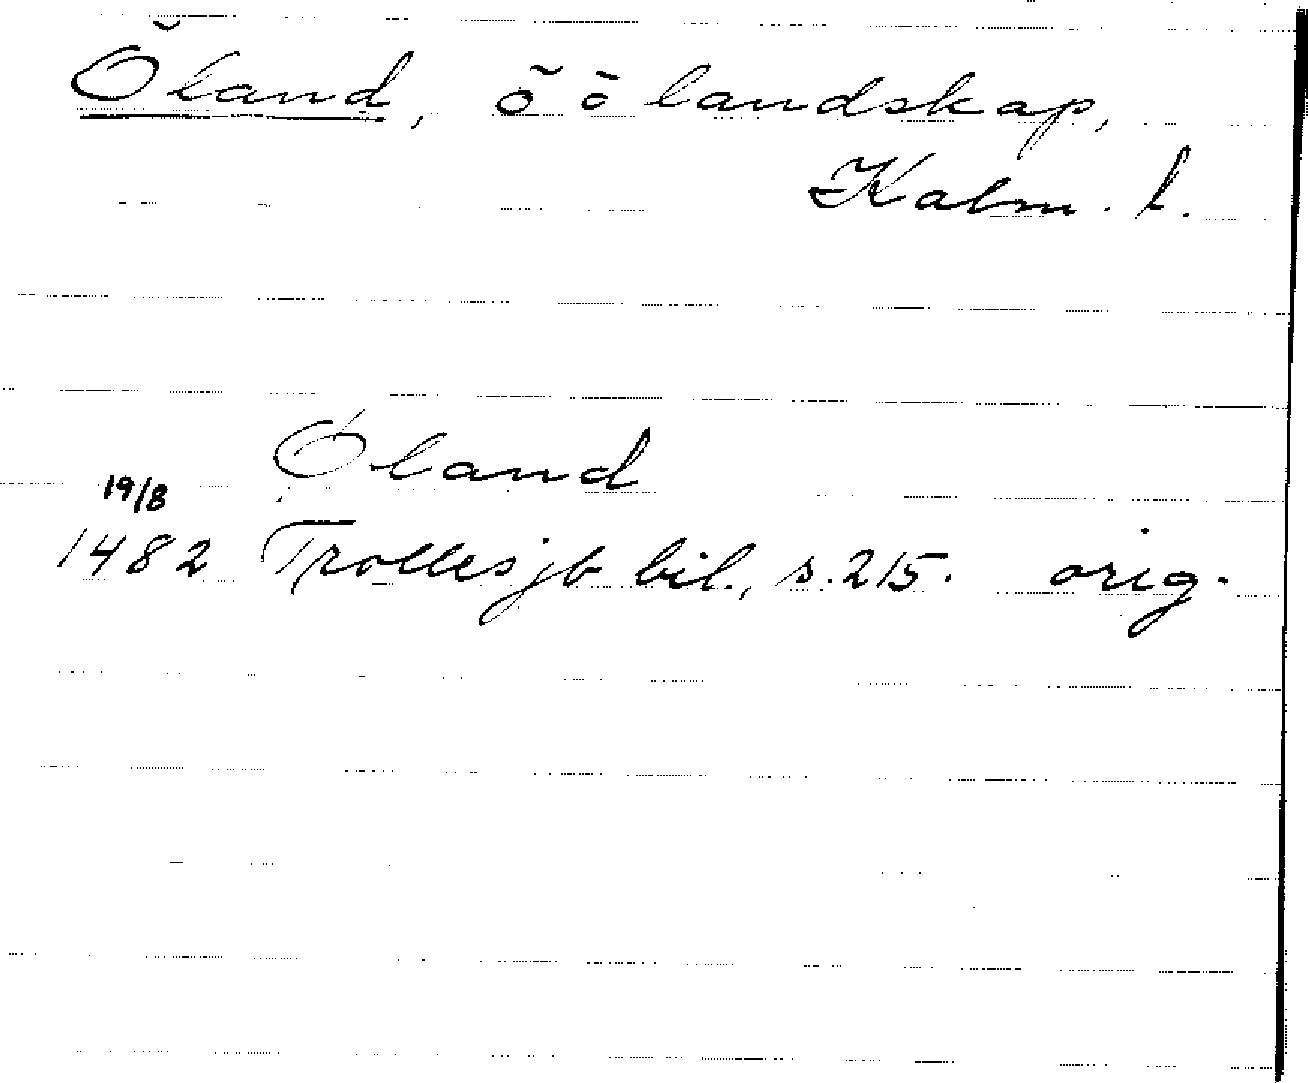 Öland, ö ö landskap,
Kalm. l.
Øland
19/8
1482 Trolles jb bil., s. 215. orig.